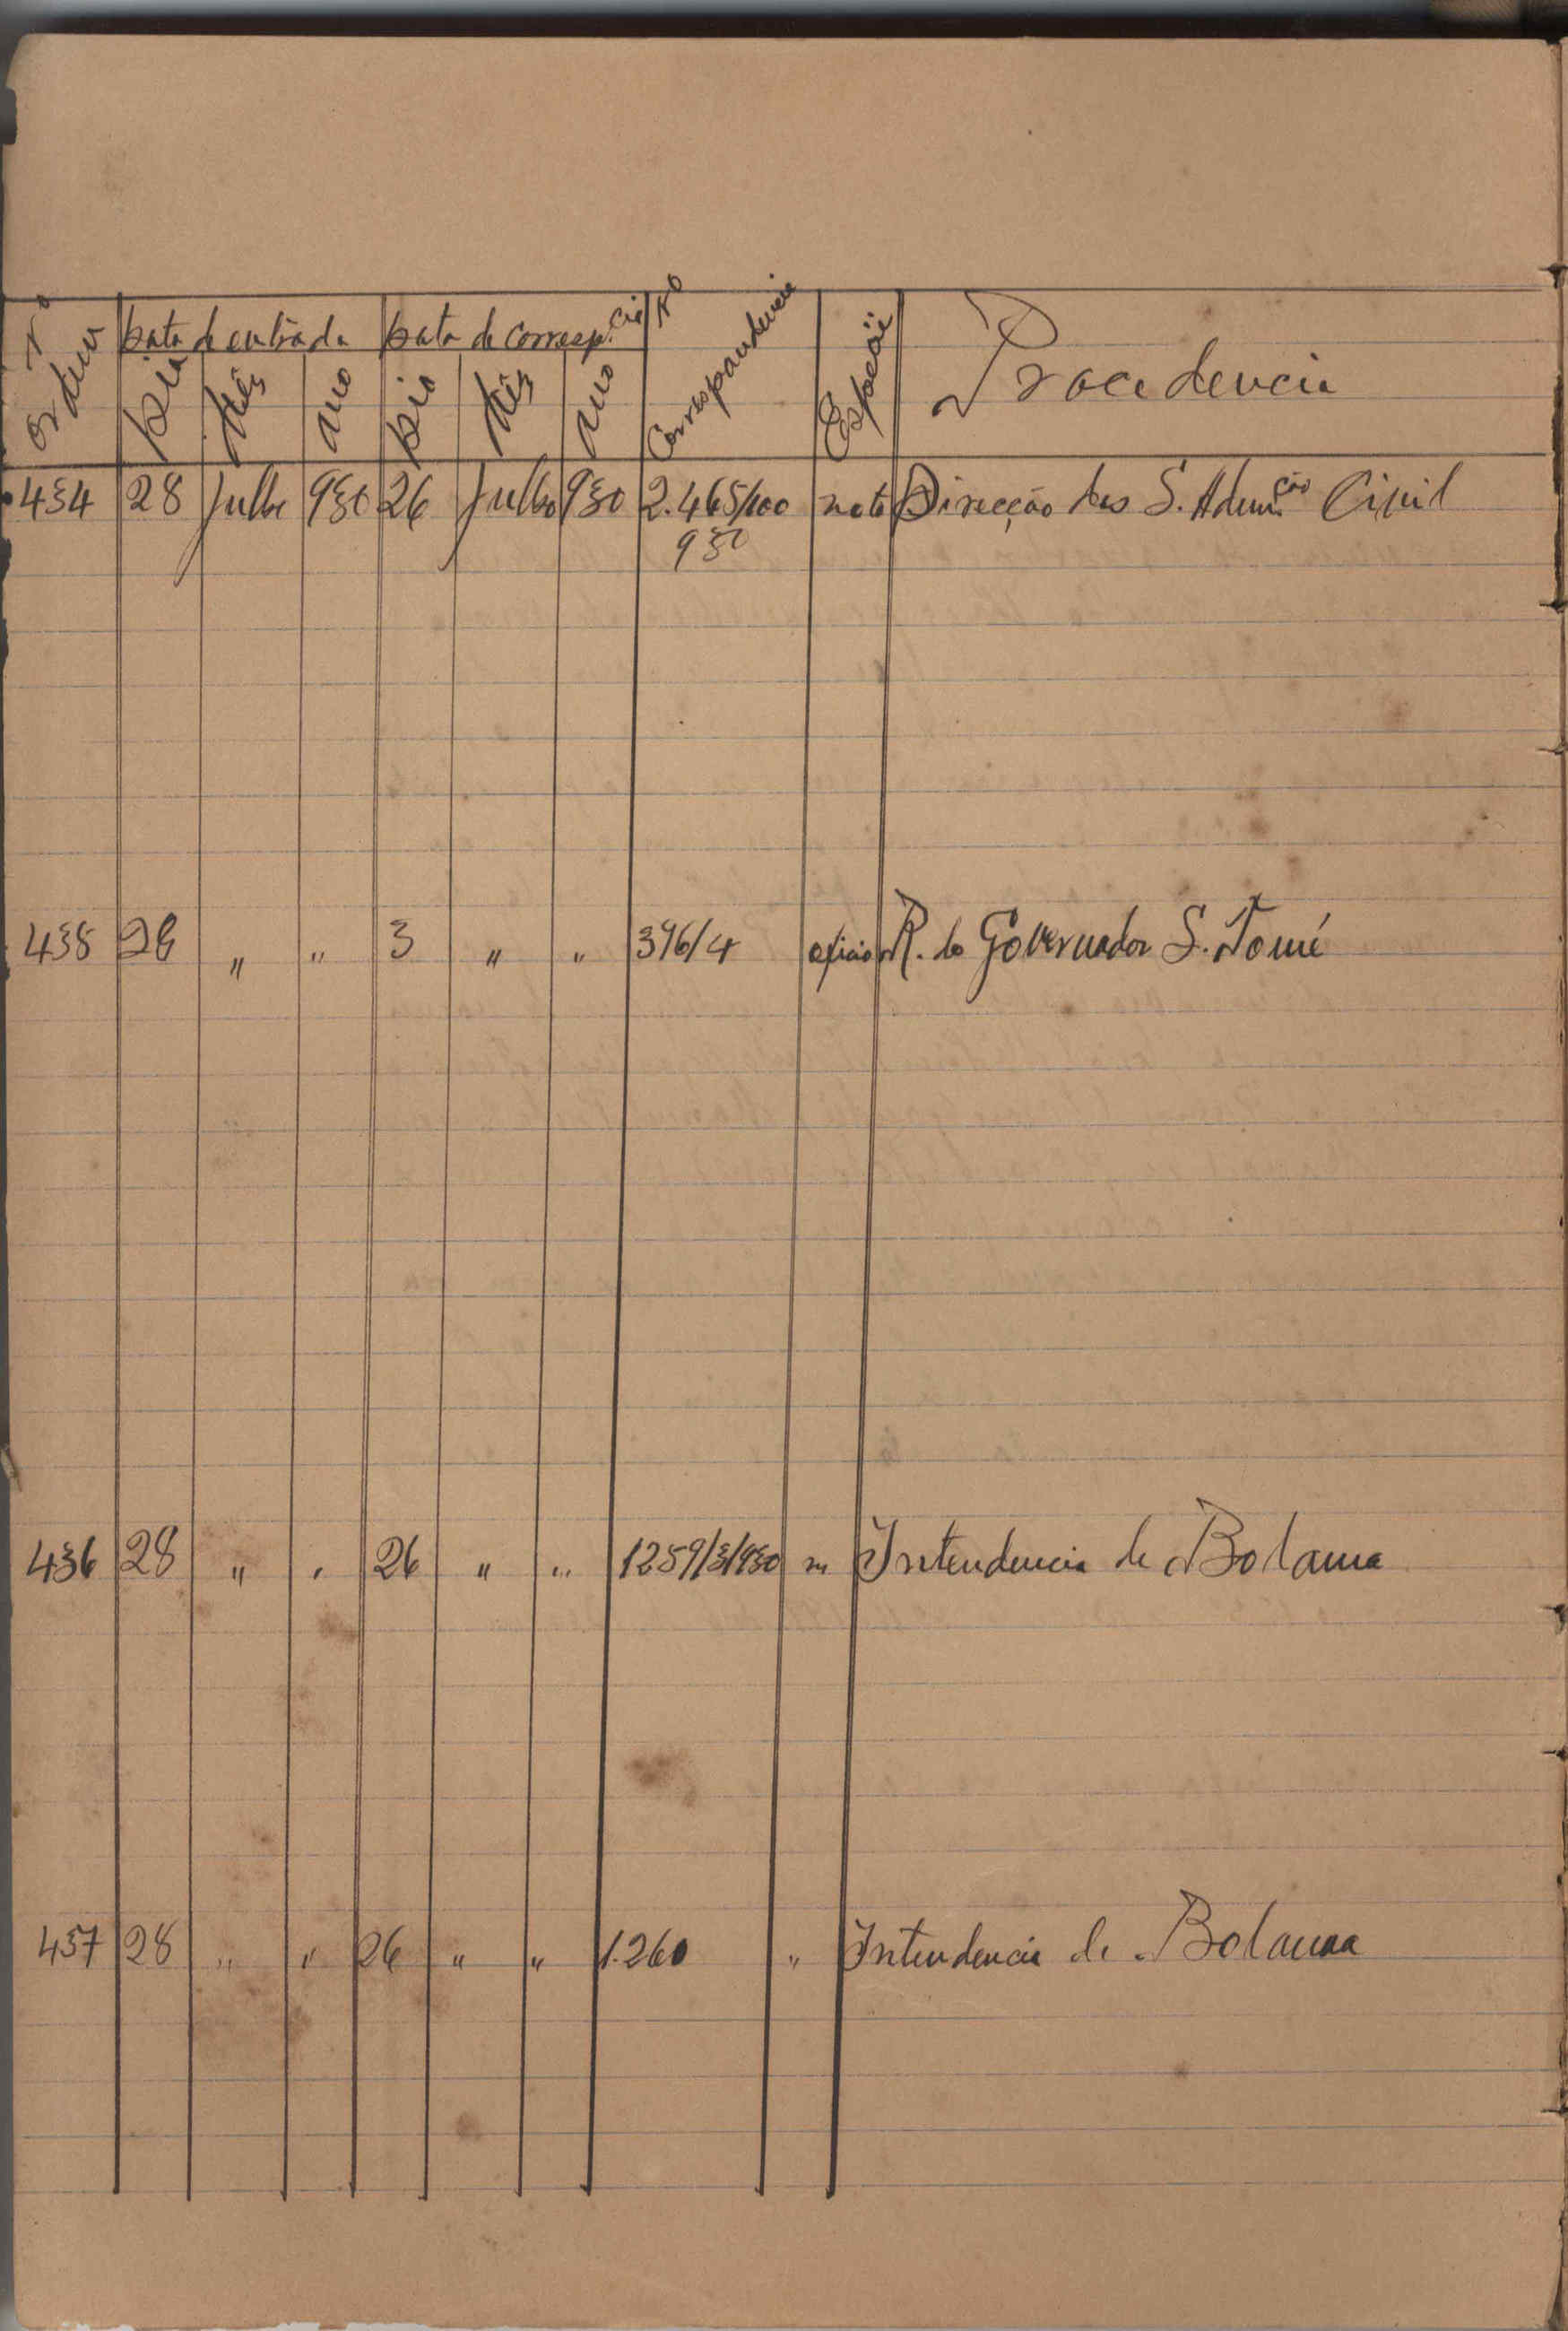 Nº ordem | Data de entrada | Data de corresp.cia | Nº Correspondencia | Especie | Procedencia
Dia | Mês | Ano | Dia | Mês | Ano
434 | 28 | Julho | 930 | 26 | Julho | 930 | 2.465/100 | nota | Direcção dos S. Adm.ção Civil
930
435 | 28 | " | " | 3 | " | " | 396/4 | oficio | R. do Governador S. Tomé
436 | 28 | " | " | 26 | " | " | 1259/3/930 | " | Intendencia de Bolama
437 | 28 | " | " | 26 | " | " | 1.260 | " | Intendencia de Bolama